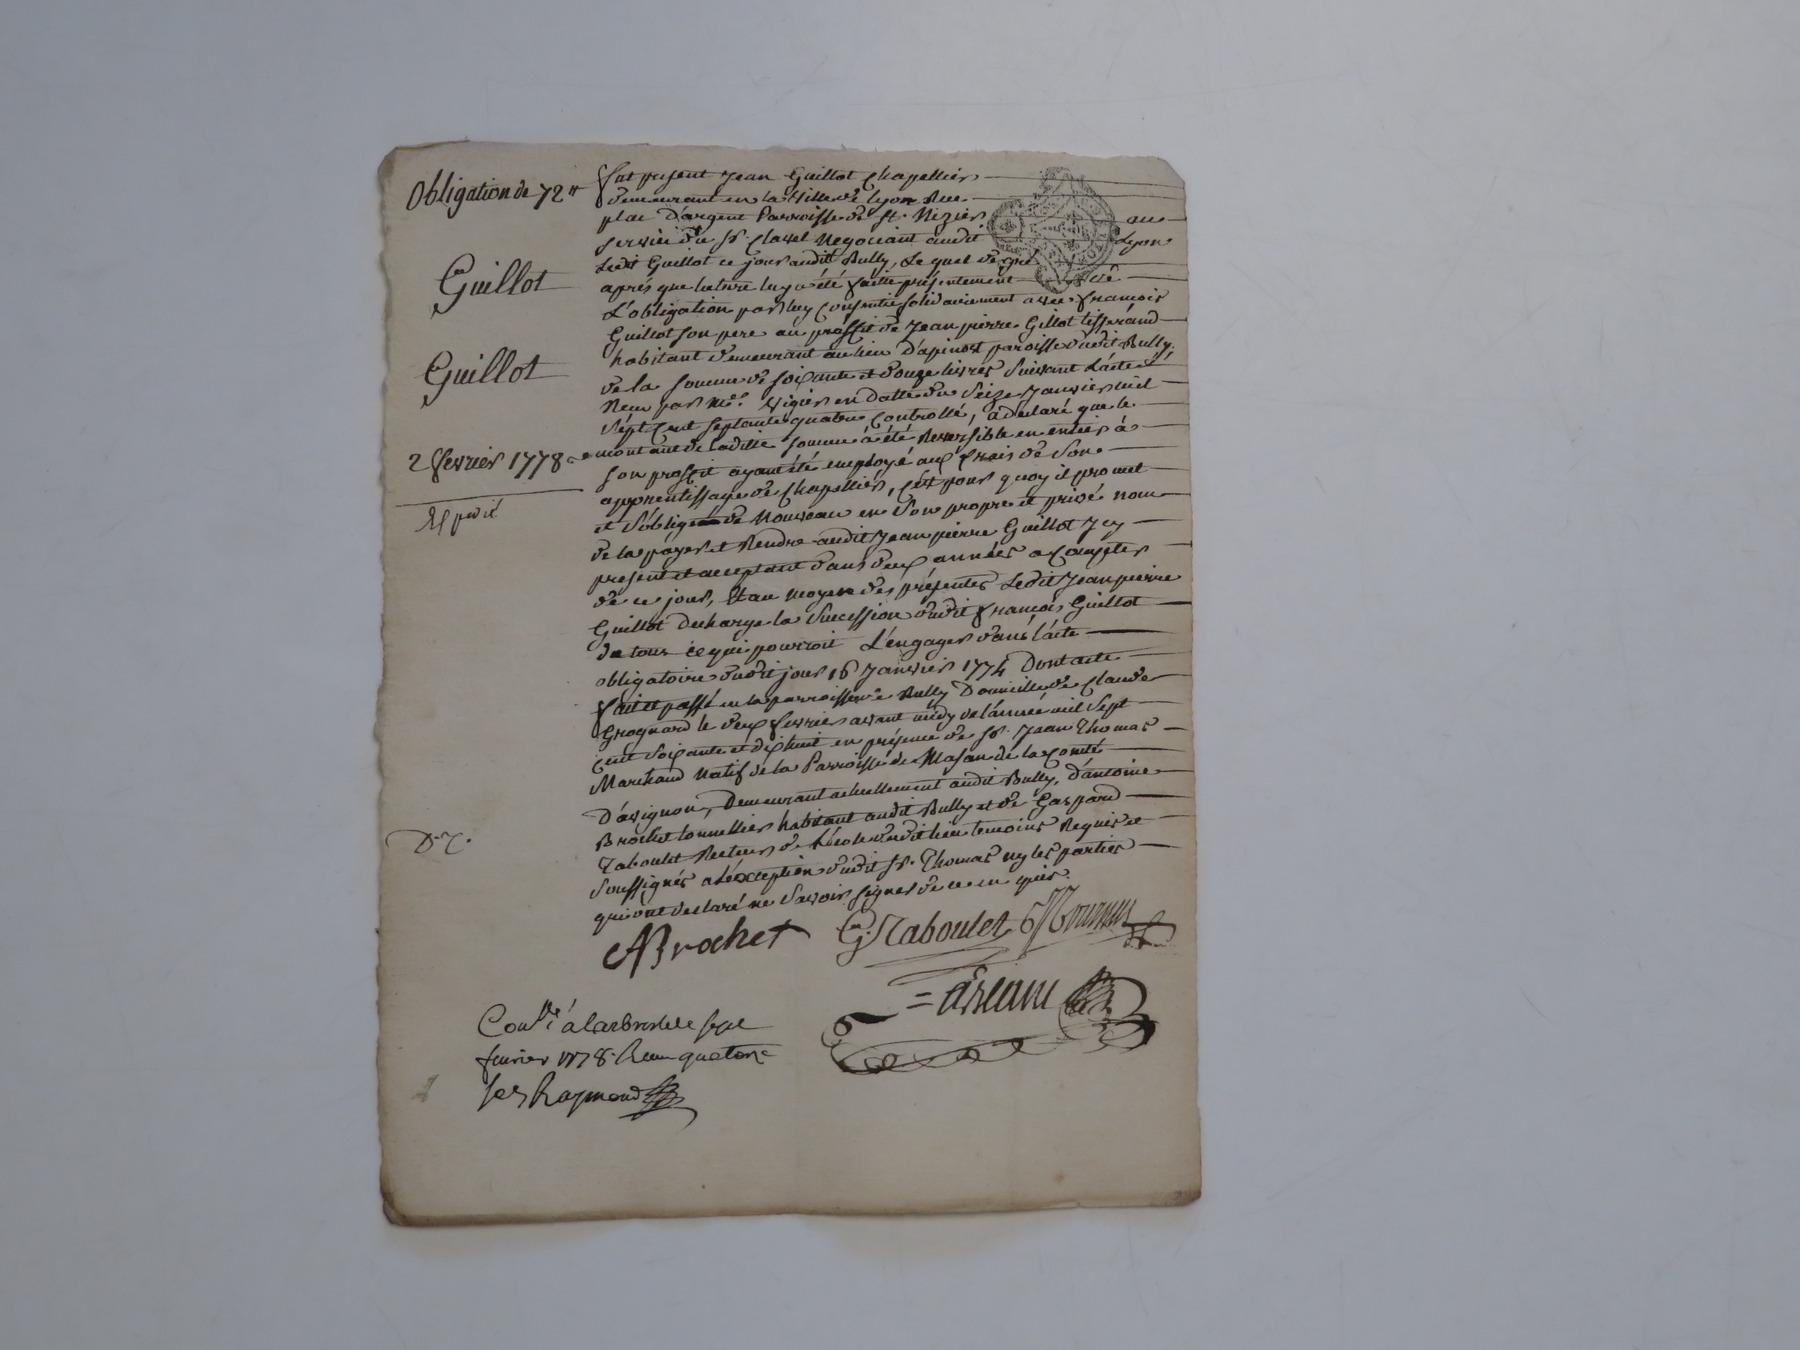 Obligation de 72 ₶
Guillot
Guillot
2 fevrier 1778
Expedié
D. C.
fut present Jean Guillot Chapellier
demeurant en la Ville de Lyon Rue
plat D'argent Parroisse de St. Nizier au
service du Sr. Clavel Negociant audit Lyon
Ledit Guillot ce jour audit Bully, Le quel de gré
aprés que lecture luy a été faitte présentement de
L'obligation par luy consentie solidairement avec françois
Guillot son pere au proffit de Jean pierre Gillot tisserand
habitant demeurant au lieu D'apinost paroisse dudit Bully
de la somme de soixante et douze livres Suivant L'acte
Reçu par Me. Vigier en datte du Seize Janvier mil
sept cent septante quatre Controllé, a declaré que le
montant de ladite somme a été Reversible en entier à
son proffit ayant été employé aux frais de Son
apprentissage de Chapellier, c'est pour quoy il promet
et S'oblige de Nouveau en Son propre et privé nom
de la payer et Rendre audit Jean pierre Guillot Icy
present et acceptant dans deux années a Compter
de ce jour, Et au moyen des présentes Ledit Jean pierre
Guillot decharge la Succession dudit françois Guillot
de tous ce qui pourroit L'engager dans l'acte
obligatoire dudit jour 16 Janvier 1774 Dont acte
fait et passé en la parroisse de Bully Domicille de Claude
Grognard le deux fevrier avant midy de l'année mil Sept
cent Soixante et dix huit en présence de Sr. Jean Thomas
Marchand Natif de la Parroisse de Masan de la Comté
D'avignon, Demeurant actuellement audit Bully, D'antoine
Brochet tonnellier habitant audit Bully et de Gaspard
Taboulet Recteur de l'école dudit lieu temoins Requis et
Soussignés a L'éxception dudit Sr. Thomas ny les parties
qui ont declaré ne Savoir signer de ce enquis.
ABrochet G. Taboulet
Conlle. à Larbresle le sept
fevrier 1778. Reçu quatorze
sols Raymond